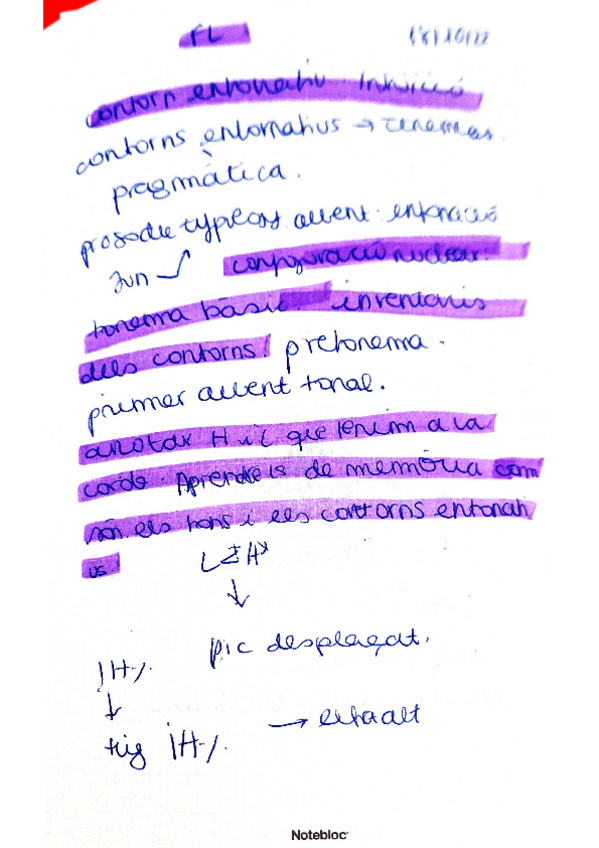 FL 18/10/22
contorn entonatiu.
contorns entornatius → tenemes.
pragmàtica.
accent. entonació
configuració nuclear.
tonema bàsic. inventaris
dels contorns! pretonema.
primer accent tonal.
anotar H i L que tenim a la
Aprendre's de memòria com
són els tons i els contorns entonati
us.
L H*
↓
pic desplaçat.
¡H%
↓
tig ¡H% → extraalt
Notebloc